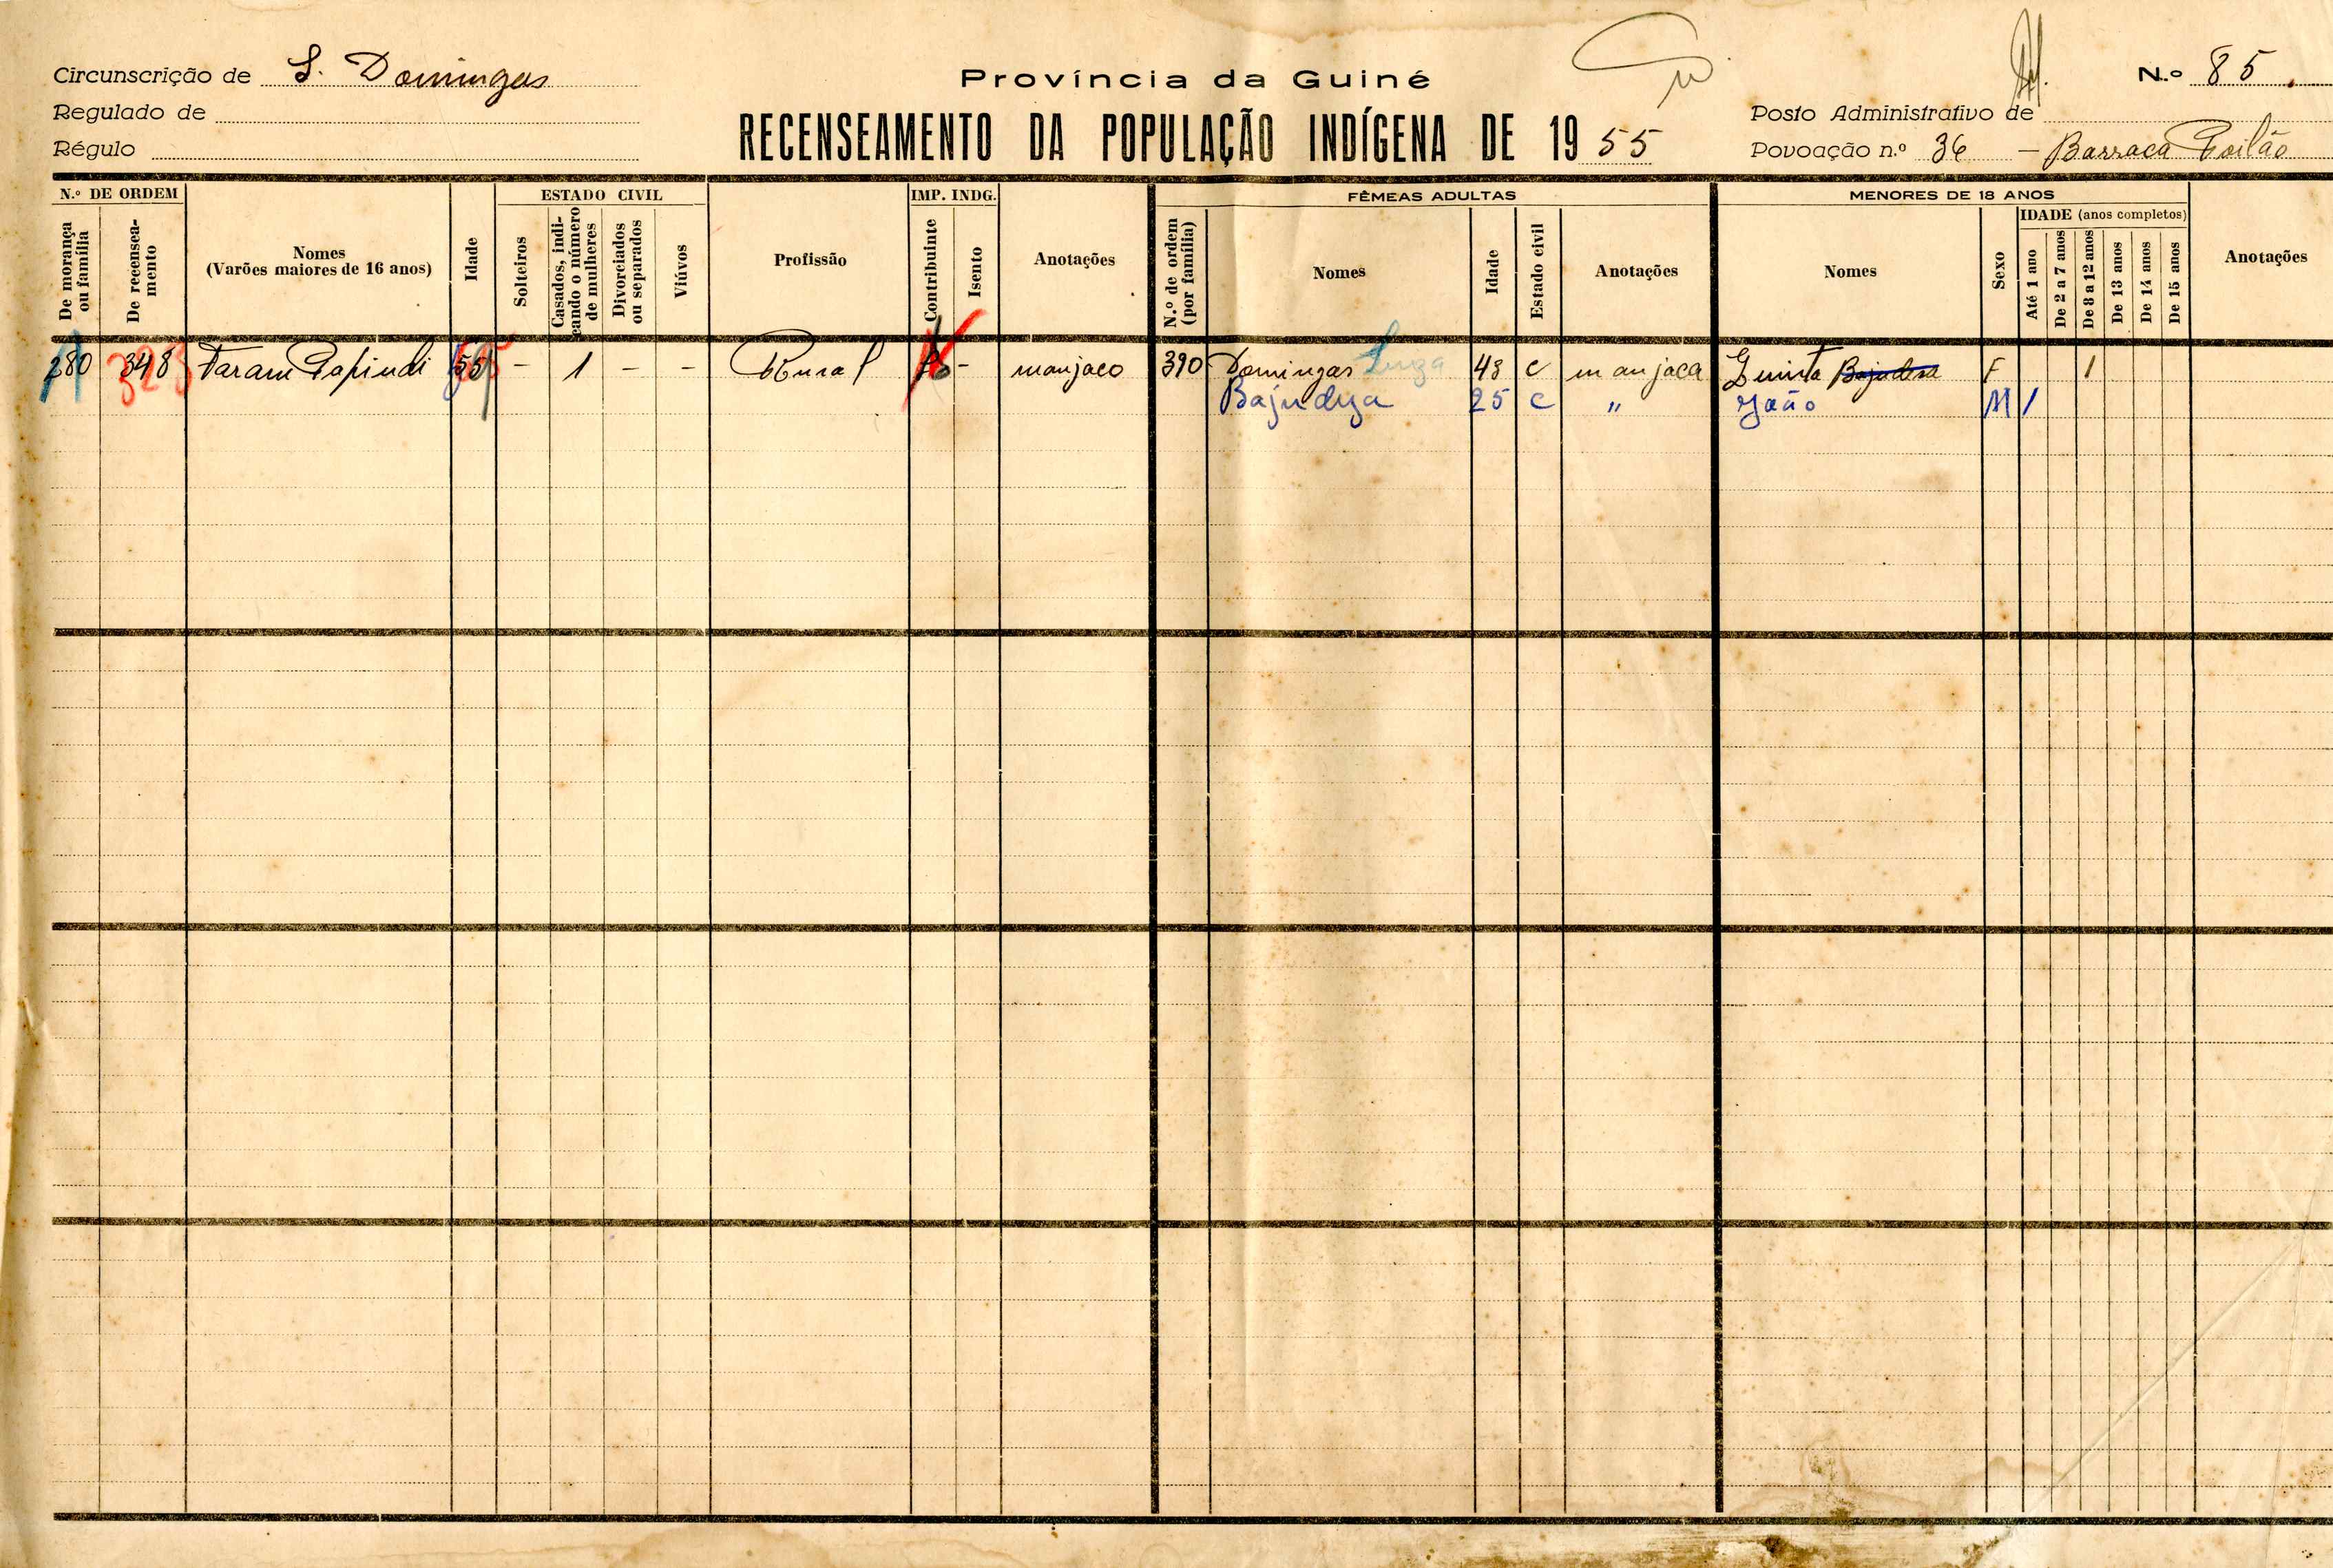 Circunscrição de S. Domingos
Regulado de
Régulo
Província da Guiné
RECENSEAMENTO DA POPULAÇÃO INDÍGENA DE 1955
N.º 85
Posto Administrativo de
Povoação n.º 36 – Barraca Poilão
N.º DE ORDEM
De morança ou família
De recenseamento
Nomes
(Varões maiores de 16 anos)
Idade
ESTADO CIVIL
Solteiros
Casados, indicando o número de mulheres
Divorciados ou separados
Viúvos
Profissão
IMP. INDG.
Contribuinte
Isento
Anotações
FÊMEAS ADULTAS
N.º de ordem (por família)
Nomes
Idade
Estado civil
Anotações
MENORES DE 18 ANOS
Nomes
Sexo
IDADE (anos completos)
Até 1 ano
De 2 a 7 anos
De 8 a 12 anos
De 13 anos
De 14 anos
De 15 anos
Anotações
280 348 Faram Papindi 55 – 1 – – Rural – manjaco 390 Domingas Luza 48 C manjaca F 1
Bajudiza 25 C " João M 1